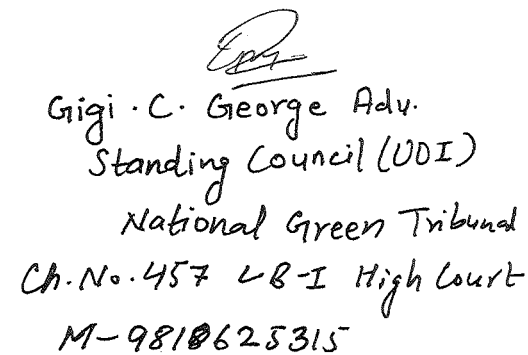 Gigi . C. George Adv.
Standing Council (UOI)
National Green Tribunal
Ch. No. 457 LB-I High Court
M-9818625315